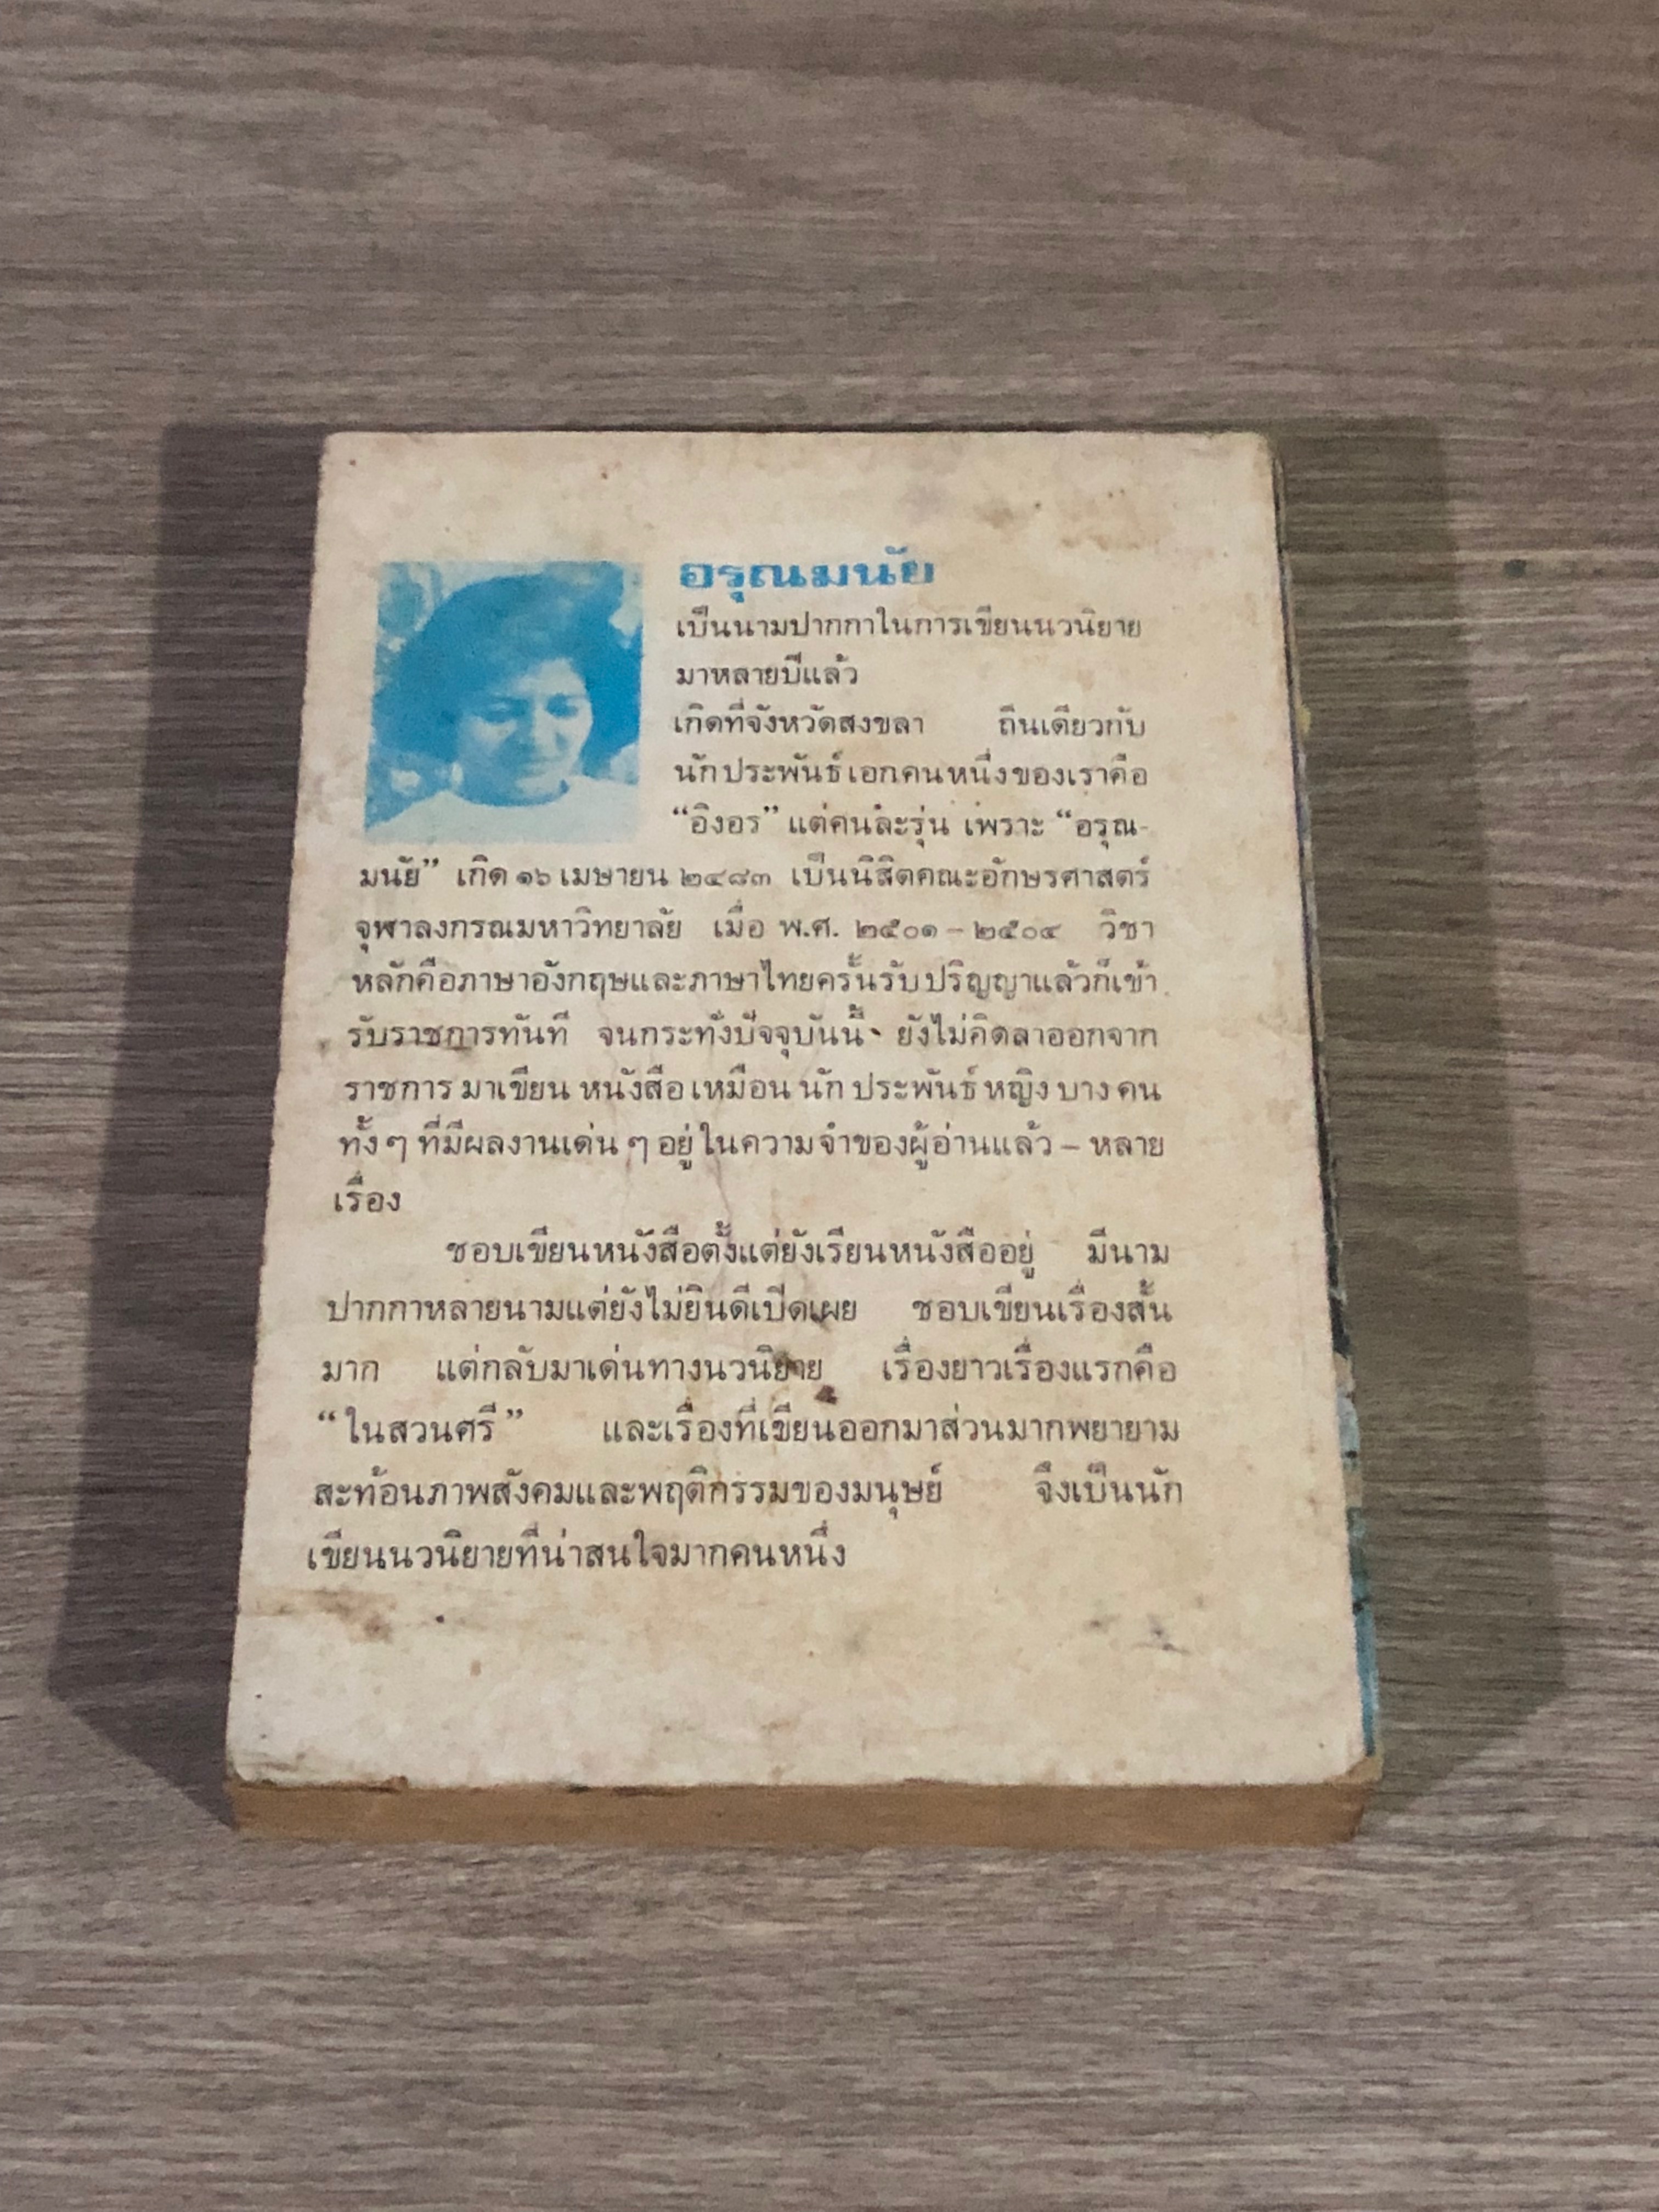 อรุณมนัย
เป็นนามปากกาในการเขียนนวนิยาย
มาหลายปีแล้ว
เกิดที่จังหวัดสงขลา ถิ่นเดียวกับ
นักประพันธ์เอกคนหนึ่งของเราคือ
“อิงอร” แต่คนละรุ่น เพราะ “อรุณ-
มนัย” เกิด ๑๖ เมษายน ๒๔๘๓ เป็นนิสิตคณะอักษรศาสตร์
จุฬาลงกรณมหาวิทยาลัย เมื่อ พ.ศ. ๒๕๐๑ – ๒๕๐๔ วิชา
หลักคือภาษาอังกฤษและภาษาไทยครั้นรับปริญญาแล้วก็เข้า
รับราชการทันที จนกระทั่งปัจจุบันนี้ ยังไม่คิดลาออกจาก
ราชการมาเขียนหนังสือเหมือนนักประพันธ์หญิงบางคน
ทั้งๆ ที่มีผลงานเด่นๆ อยู่ในความจำของผู้อ่านแล้ว – หลาย
เรื่อง
ชอบเขียนหนังสือตั้งแต่ยังเรียนหนังสืออยู่ มีนาม
ปากกาหลายนามแต่ยังไม่ยินดีเปิดเผย ชอบเขียนเรื่องสั้น
มาก แต่กลับมาเด่นทางนวนิยาย เรื่องยาวเรื่องแรกคือ
“ในสวนศรี” และเรื่องที่เขียนออกมาส่วนมากพยายาม
สะท้อนภาพสังคมและพฤติกรรมของมนุษย์ จึงเป็นนัก
เขียนนวนิยายที่น่าสนใจมากคนหนึ่ง